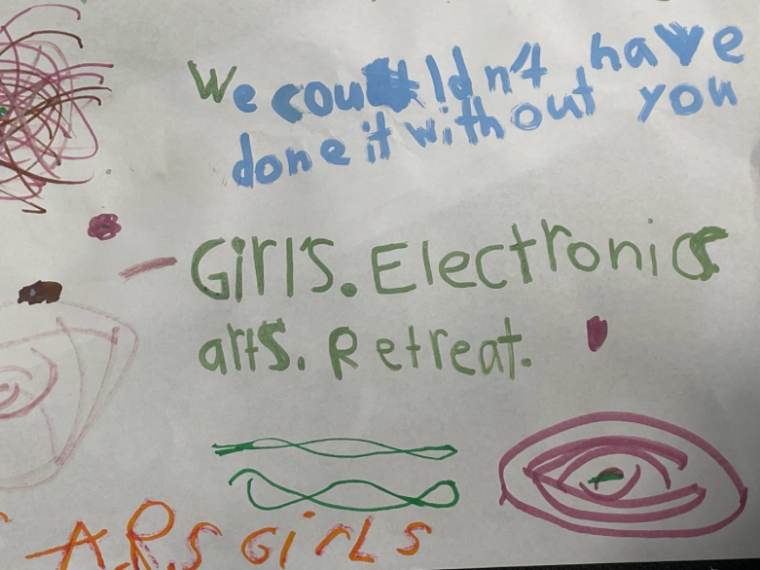 We couldn't have
done it without you
Girl's. Electronics
arts. Retreat.
A.R.S GiRLS